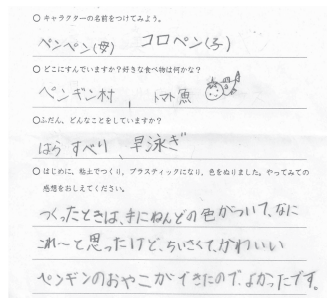 ○ キャラクターの名前をつけてみよう。
ペンペン(母) コロペン(子)
○ どこにすんでいますか?好きな食べ物は何かな?
ペンギン村、トマト魚
○ふだん、どんなことをしていますか?
はらすべり、早泳ぎ
○ はじめに、粘土でつくり、プラスティックになり、色をぬりました。やってみての
感想をおしえてください。
つくったときは、手にねんどの色がついて、なに
これ～と思ったけど、ちいさくて、かわいい
ペンギンのおやこができたので、よかったです。